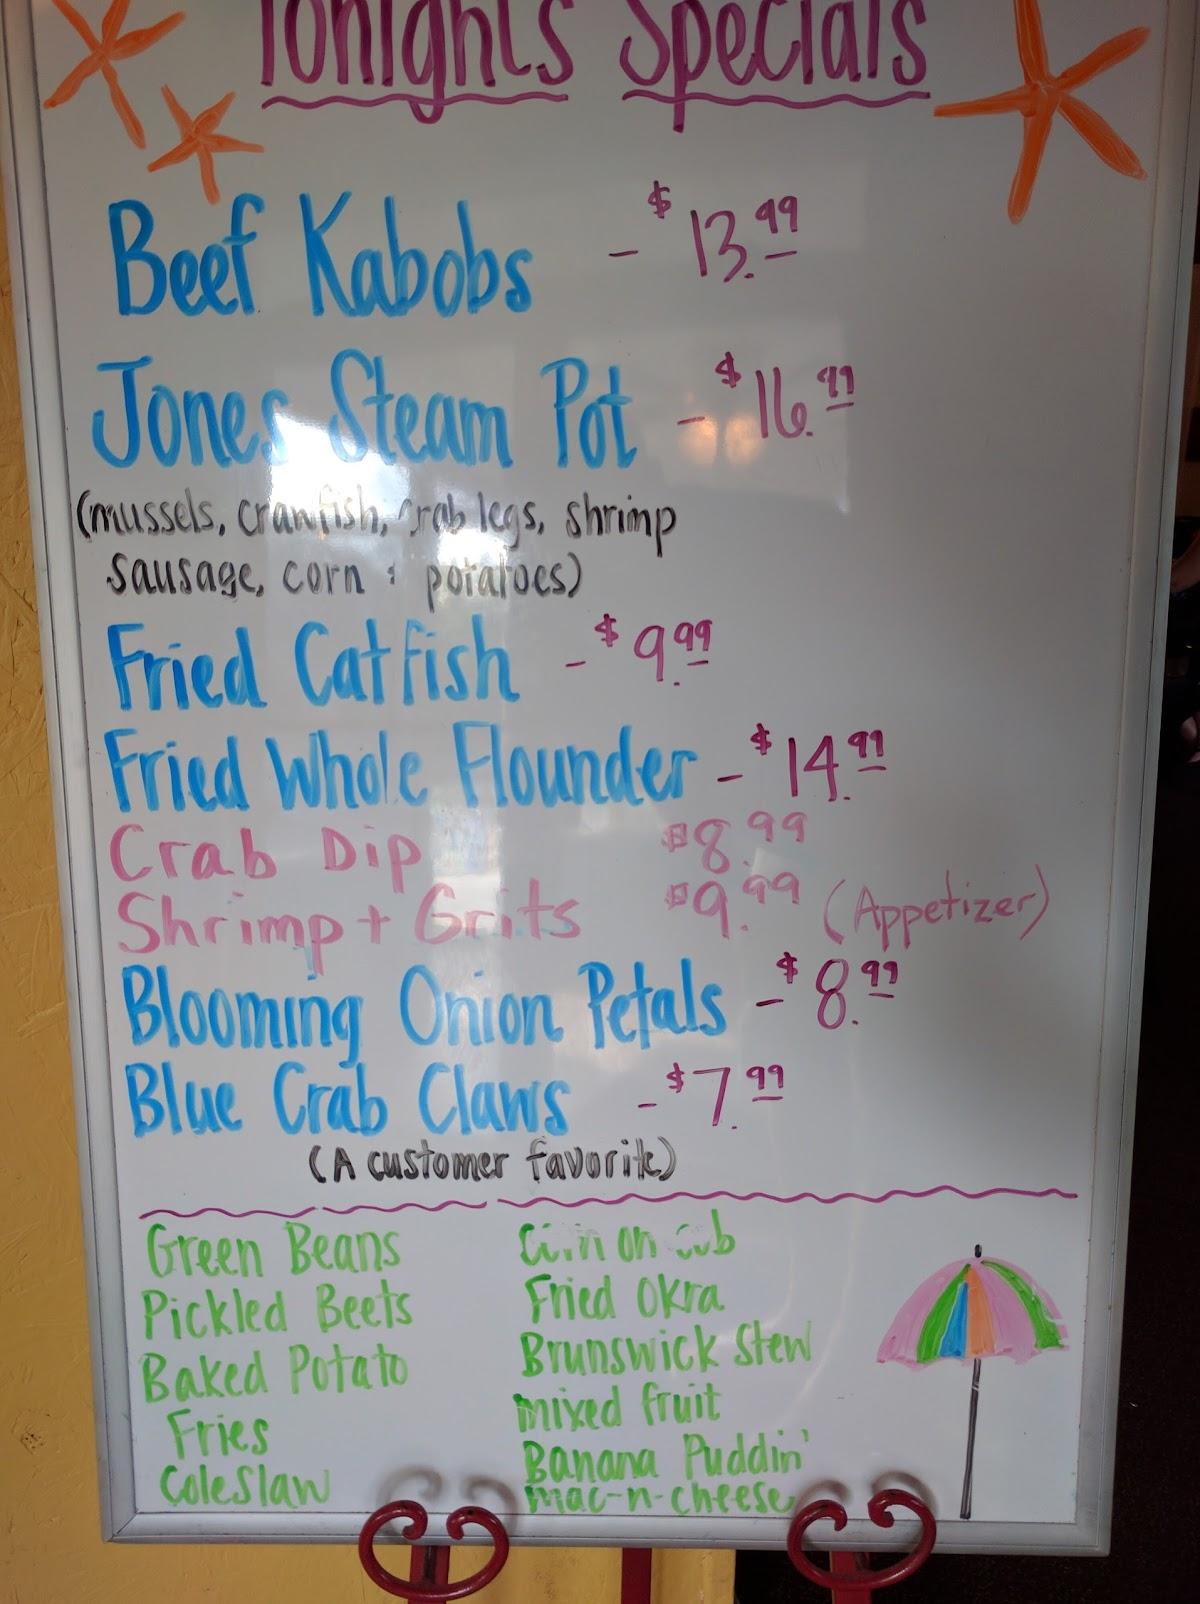 Tonights Specials
Beef Kabobs - $13.99
Jones Steam Pot - $16.99
(mussels, crawfish, crab legs, shrimp
sausage, corn & potatoes)
Fried Catfish - $9.99
Fried Whole Flounder - $14.99
Crab Dip $8.99
Shrimp + Grits $9.99 (Appetizer)
Blooming Onion Petals - $8.99
Blue Crab Claws - $7.99
(A customer favorite)
Green Beans
Pickled Beets
Baked Potato
Fries
Coleslaw
Corn on cob
Fried Okra
Brunswick Stew
mixed fruit
Banana Puddin'
mac-n-cheese